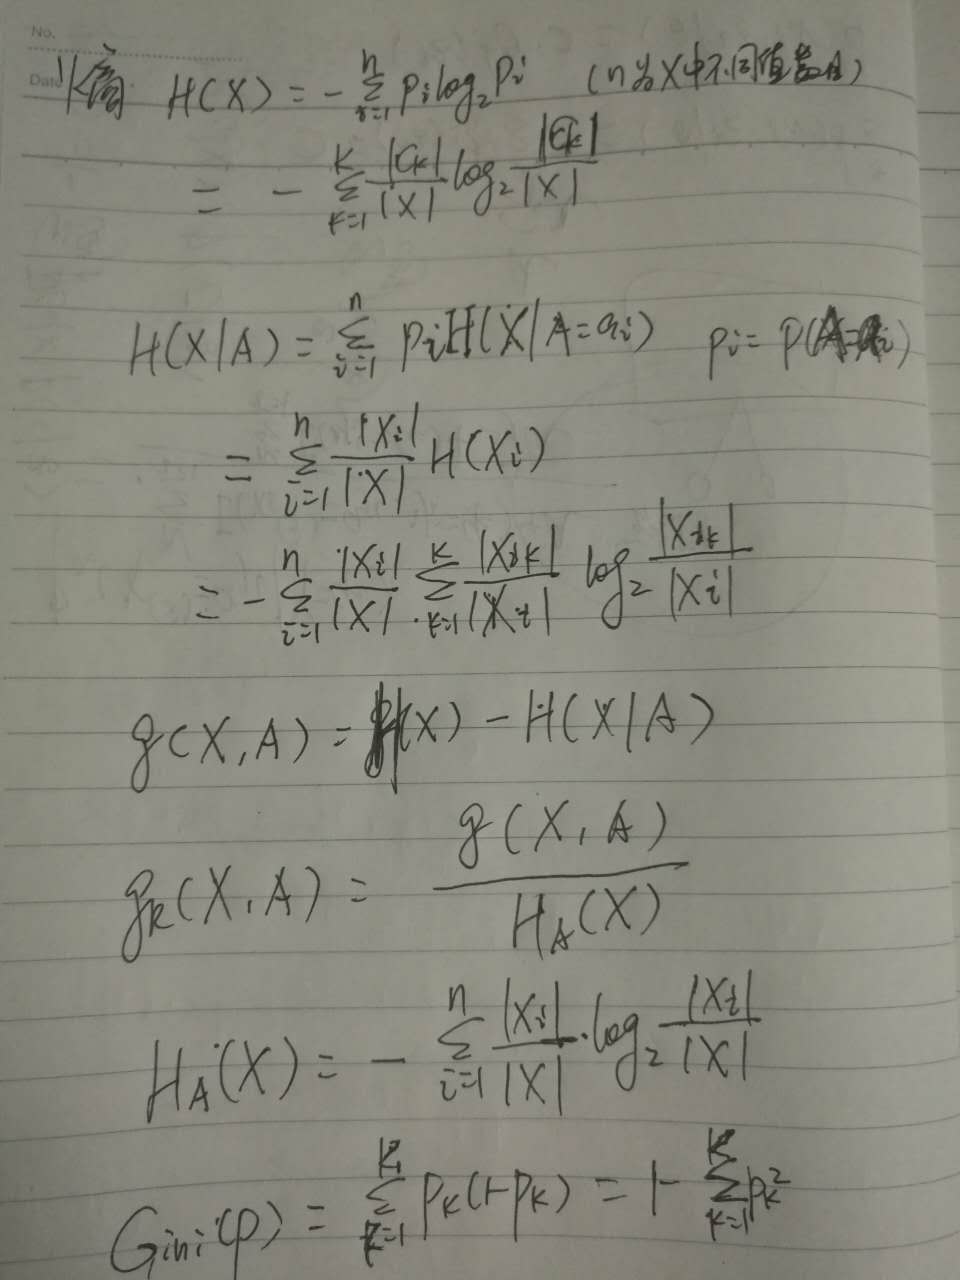 No.
Date
熵 H(X) = - \sum_{i=1}^{n} p_i log_2 p_i (n为X中不同值数目)
= - \sum_{k=1}^{K} \frac{|C_k|}{|X|} log_2 \frac{|C_k|}{|X|}
H(X|A) = \sum_{i=1}^{n} p_i H(X|A=a_i) p_i = P(A=a_i)
= \sum_{i=1}^{n} \frac{|X_i|}{|X|} H(X_i)
= - \sum_{i=1}^{n} \frac{|X_i|}{|X|} · \sum_{k=1}^{K} \frac{|X_{ik}|}{|X_i|} log_2 \frac{|X_{ik}|}{|X_i|}
g(X,A) = H(X) - H(X|A)
g_R(X,A) = \frac{g(X,A)}{H_A(X)}
H_A(X) = - \sum_{i=1}^{n} \frac{|X_i|}{|X|} · log_2 \frac{|X_i|}{|X|}
Gini(p) = \sum_{k=1}^{K} p_k(1-p_k) = 1 - \sum_{k=1}^{K} p_k^2